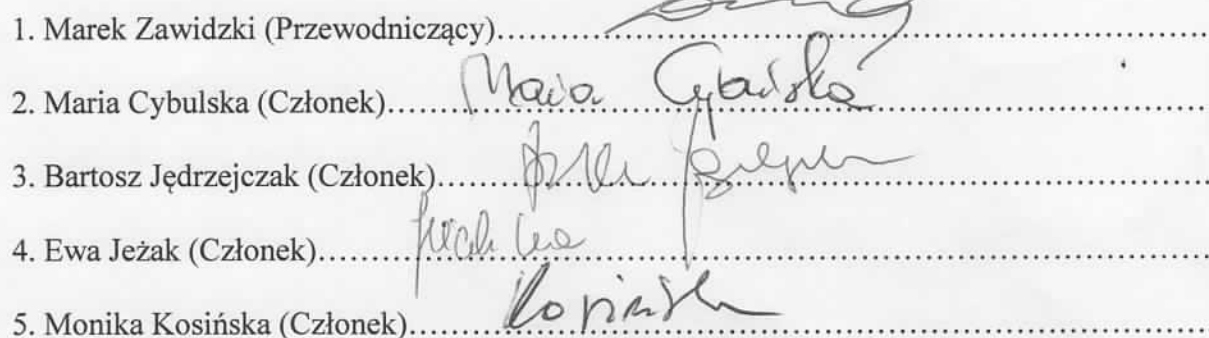 1. Marek Zawidzki (Przewodniczący)
2. Maria Cybulska (Członek) Maria Cybulska
3. Bartosz Jędrzejczak (Członek)
4. Ewa Jeżak (Członek)
5. Monika Kosińska (Członek) Kosińska